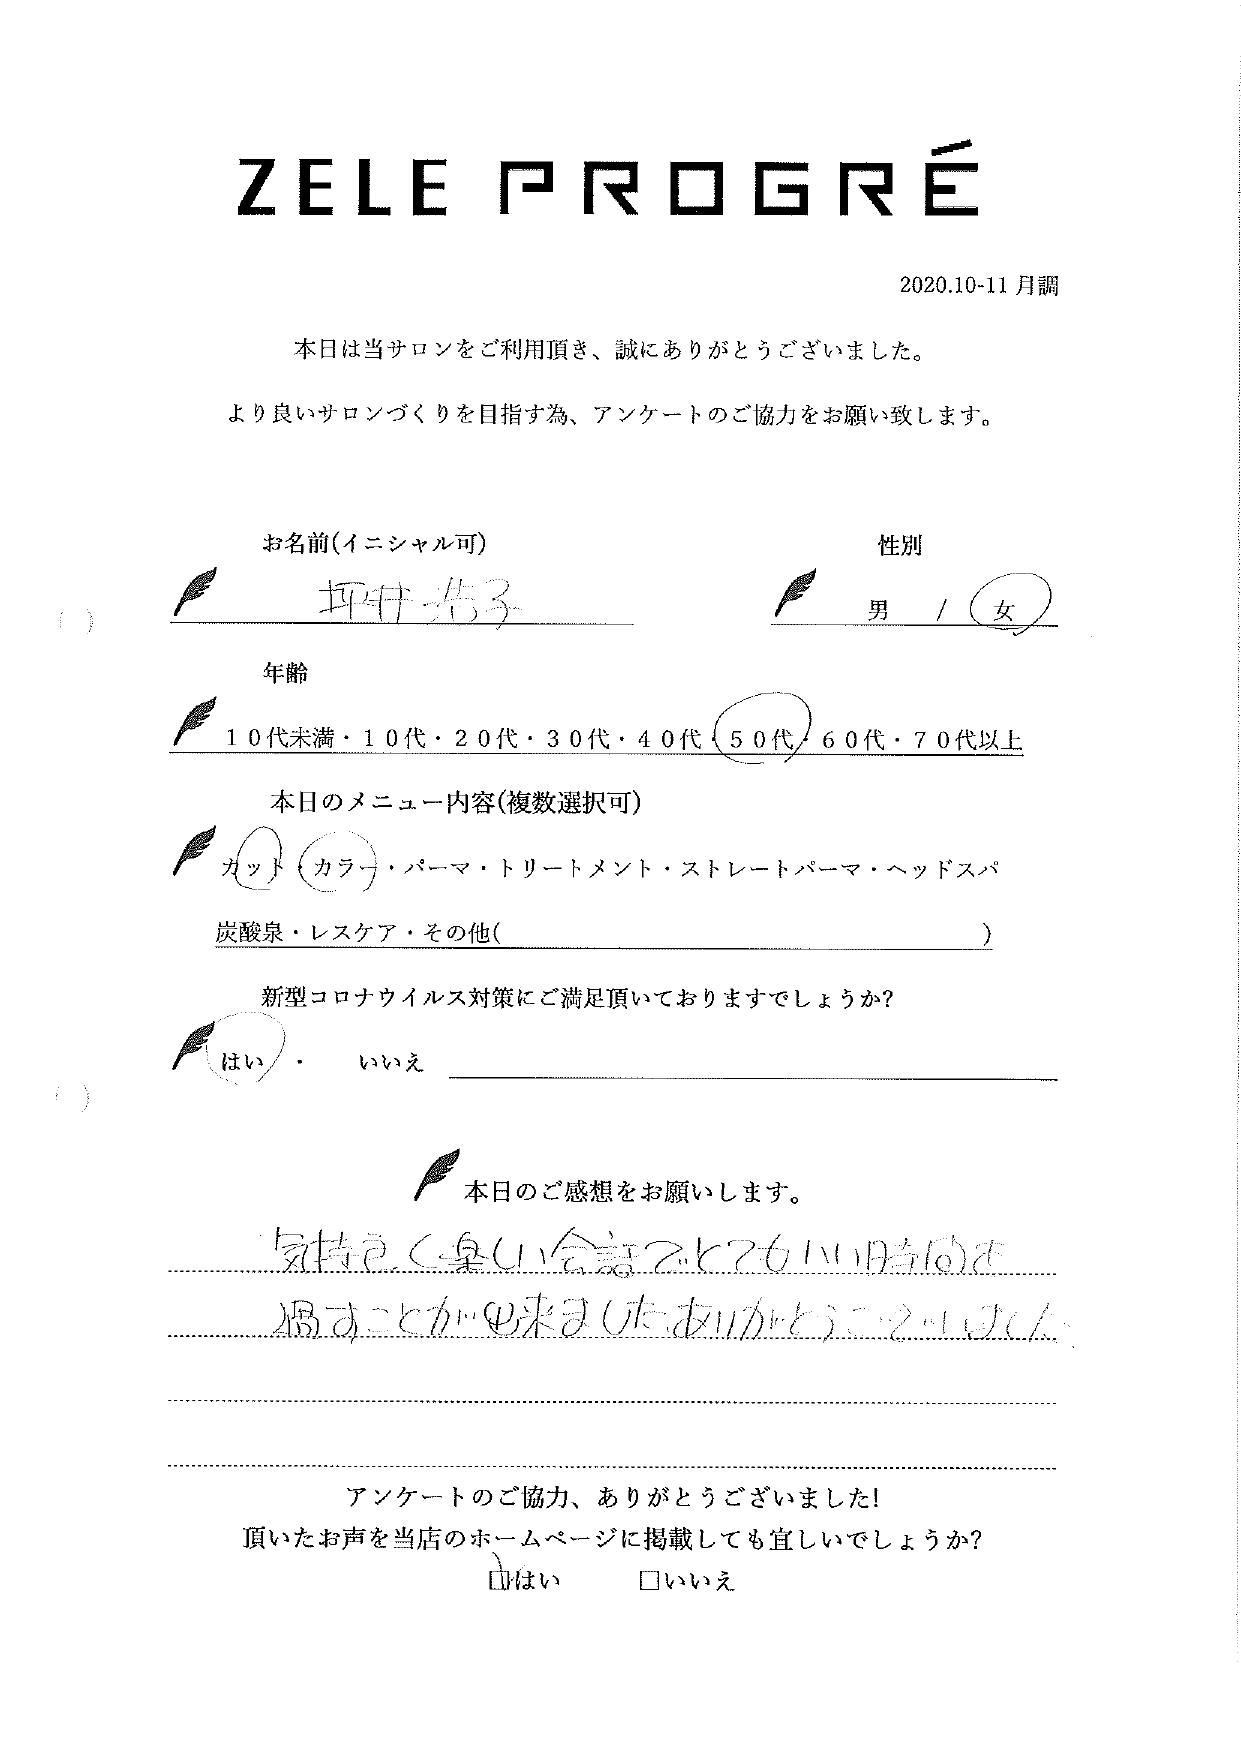 ZELE PROGRÉ
2020.10-11 月調
本日は当サロンをご利用頂き、誠にありがとうございました。
より良いサロンづくりを目指す為、アンケートのご協力をお願い致します。
お名前(イニシャル可) 性別
坪井 浩子 男 / 女
年齢
１０代未満・１０代・２０代・３０代・４０代・５０代・６０代・７０代以上
本日のメニュー内容(複数選択可)
カット・カラー・パーマ・トリートメント・ストレートパーマ・ヘッドスパ
炭酸泉・レスケア・その他( )
新型コロナウイルス対策にご満足頂いておりますでしょうか?
はい ・ いいえ
本日のご感想をお願いします。
気持き.く楽しい会話でとてもいい時間を
過すことが出来ました.ありがとうございました
アンケートのご協力、ありがとうございました!
頂いたお声を当店のホームページに掲載しても宜しいでしょうか?
□はい □いいえ